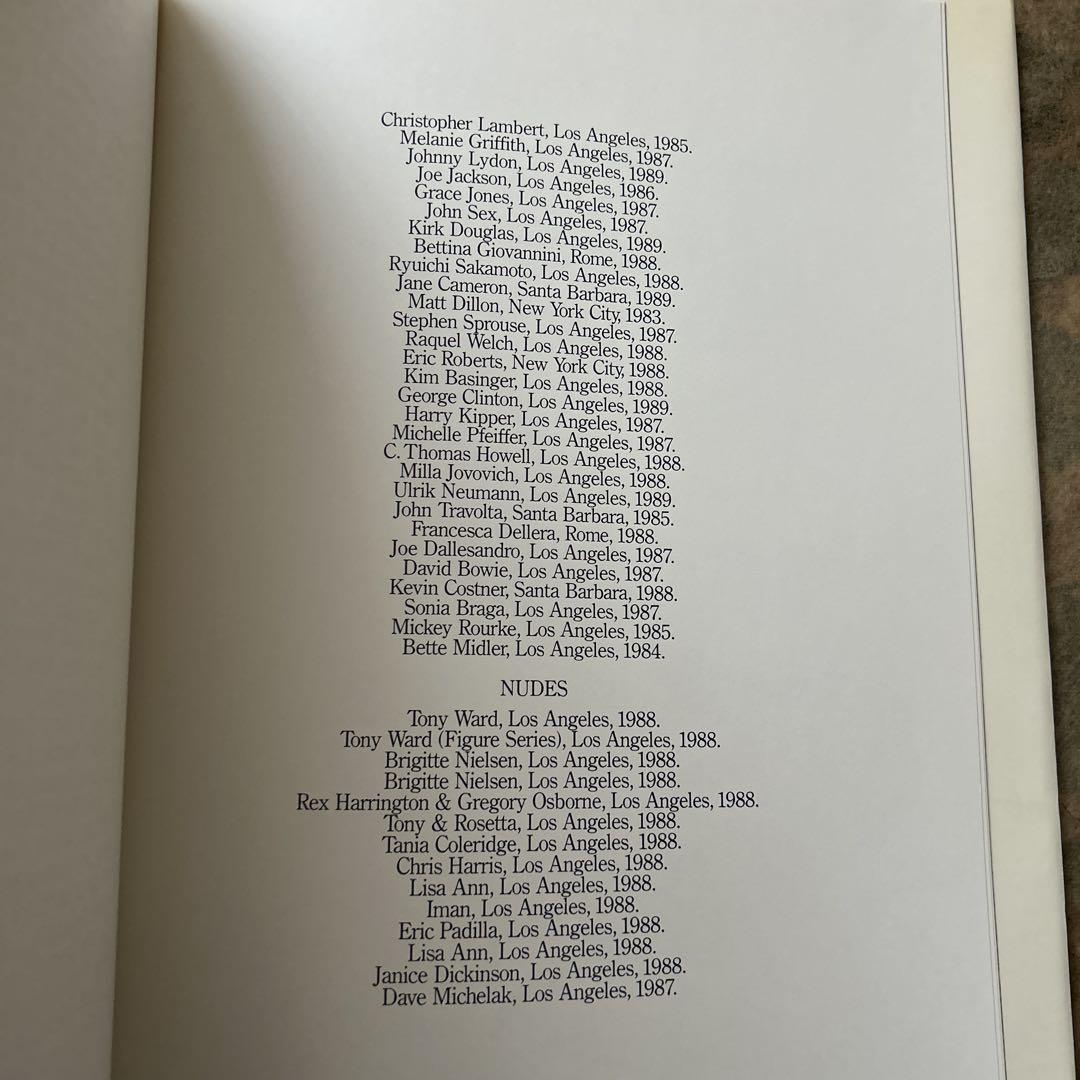 Christopher Lambert, Los Angeles, 1985.
Melanie Griffith, Los Angeles, 1987.
Johnny Lydon, Los Angeles, 1989.
Joe Jackson, Los Angeles, 1986.
Grace Jones, Los Angeles, 1987.
John Sex, Los Angeles, 1987.
Kirk Douglas, Los Angeles, 1989.
Bettina Giovannini, Rome, 1988.
Ryuichi Sakamoto, Los Angeles, 1988.
Jane Cameron, Santa Barbara, 1989.
Matt Dillon, New York City, 1983.
Stephen Sprouse, Los Angeles, 1987.
Raquel Welch, Los Angeles, 1988.
Eric Roberts, New York City, 1988.
Kim Basinger, Los Angeles, 1988.
George Clinton, Los Angeles, 1989.
Harry Kipper, Los Angeles, 1987.
Michelle Pfeiffer, Los Angeles, 1987.
C. Thomas Howell, Los Angeles, 1988.
Milla Jovovich, Los Angeles, 1988.
Ulrik Neumann, Los Angeles, 1989.
John Travolta, Santa Barbara, 1985.
Francesca Dellera, Rome, 1988.
Joe Dallesandro, Los Angeles, 1987.
David Bowie, Los Angeles, 1987.
Kevin Costner, Santa Barbara, 1988.
Sonia Braga, Los Angeles, 1987.
Mickey Rourke, Los Angeles, 1985.
Bette Midler, Los Angeles, 1984.
NUDES
Tony Ward, Los Angeles, 1988.
Tony Ward (Figure Series), Los Angeles, 1988.
Brigitte Nielsen, Los Angeles, 1988.
Brigitte Nielsen, Los Angeles, 1988.
Rex Harrington & Gregory Osborne, Los Angeles, 1988.
Tony & Rosetta, Los Angeles, 1988.
Tania Coleridge, Los Angeles, 1988.
Chris Harris, Los Angeles, 1988.
Lisa Ann, Los Angeles, 1988.
Iman, Los Angeles, 1988.
Eric Padilla, Los Angeles, 1988.
Lisa Ann, Los Angeles, 1988.
Janice Dickinson, Los Angeles, 1988.
Dave Michelak, Los Angeles, 1987.